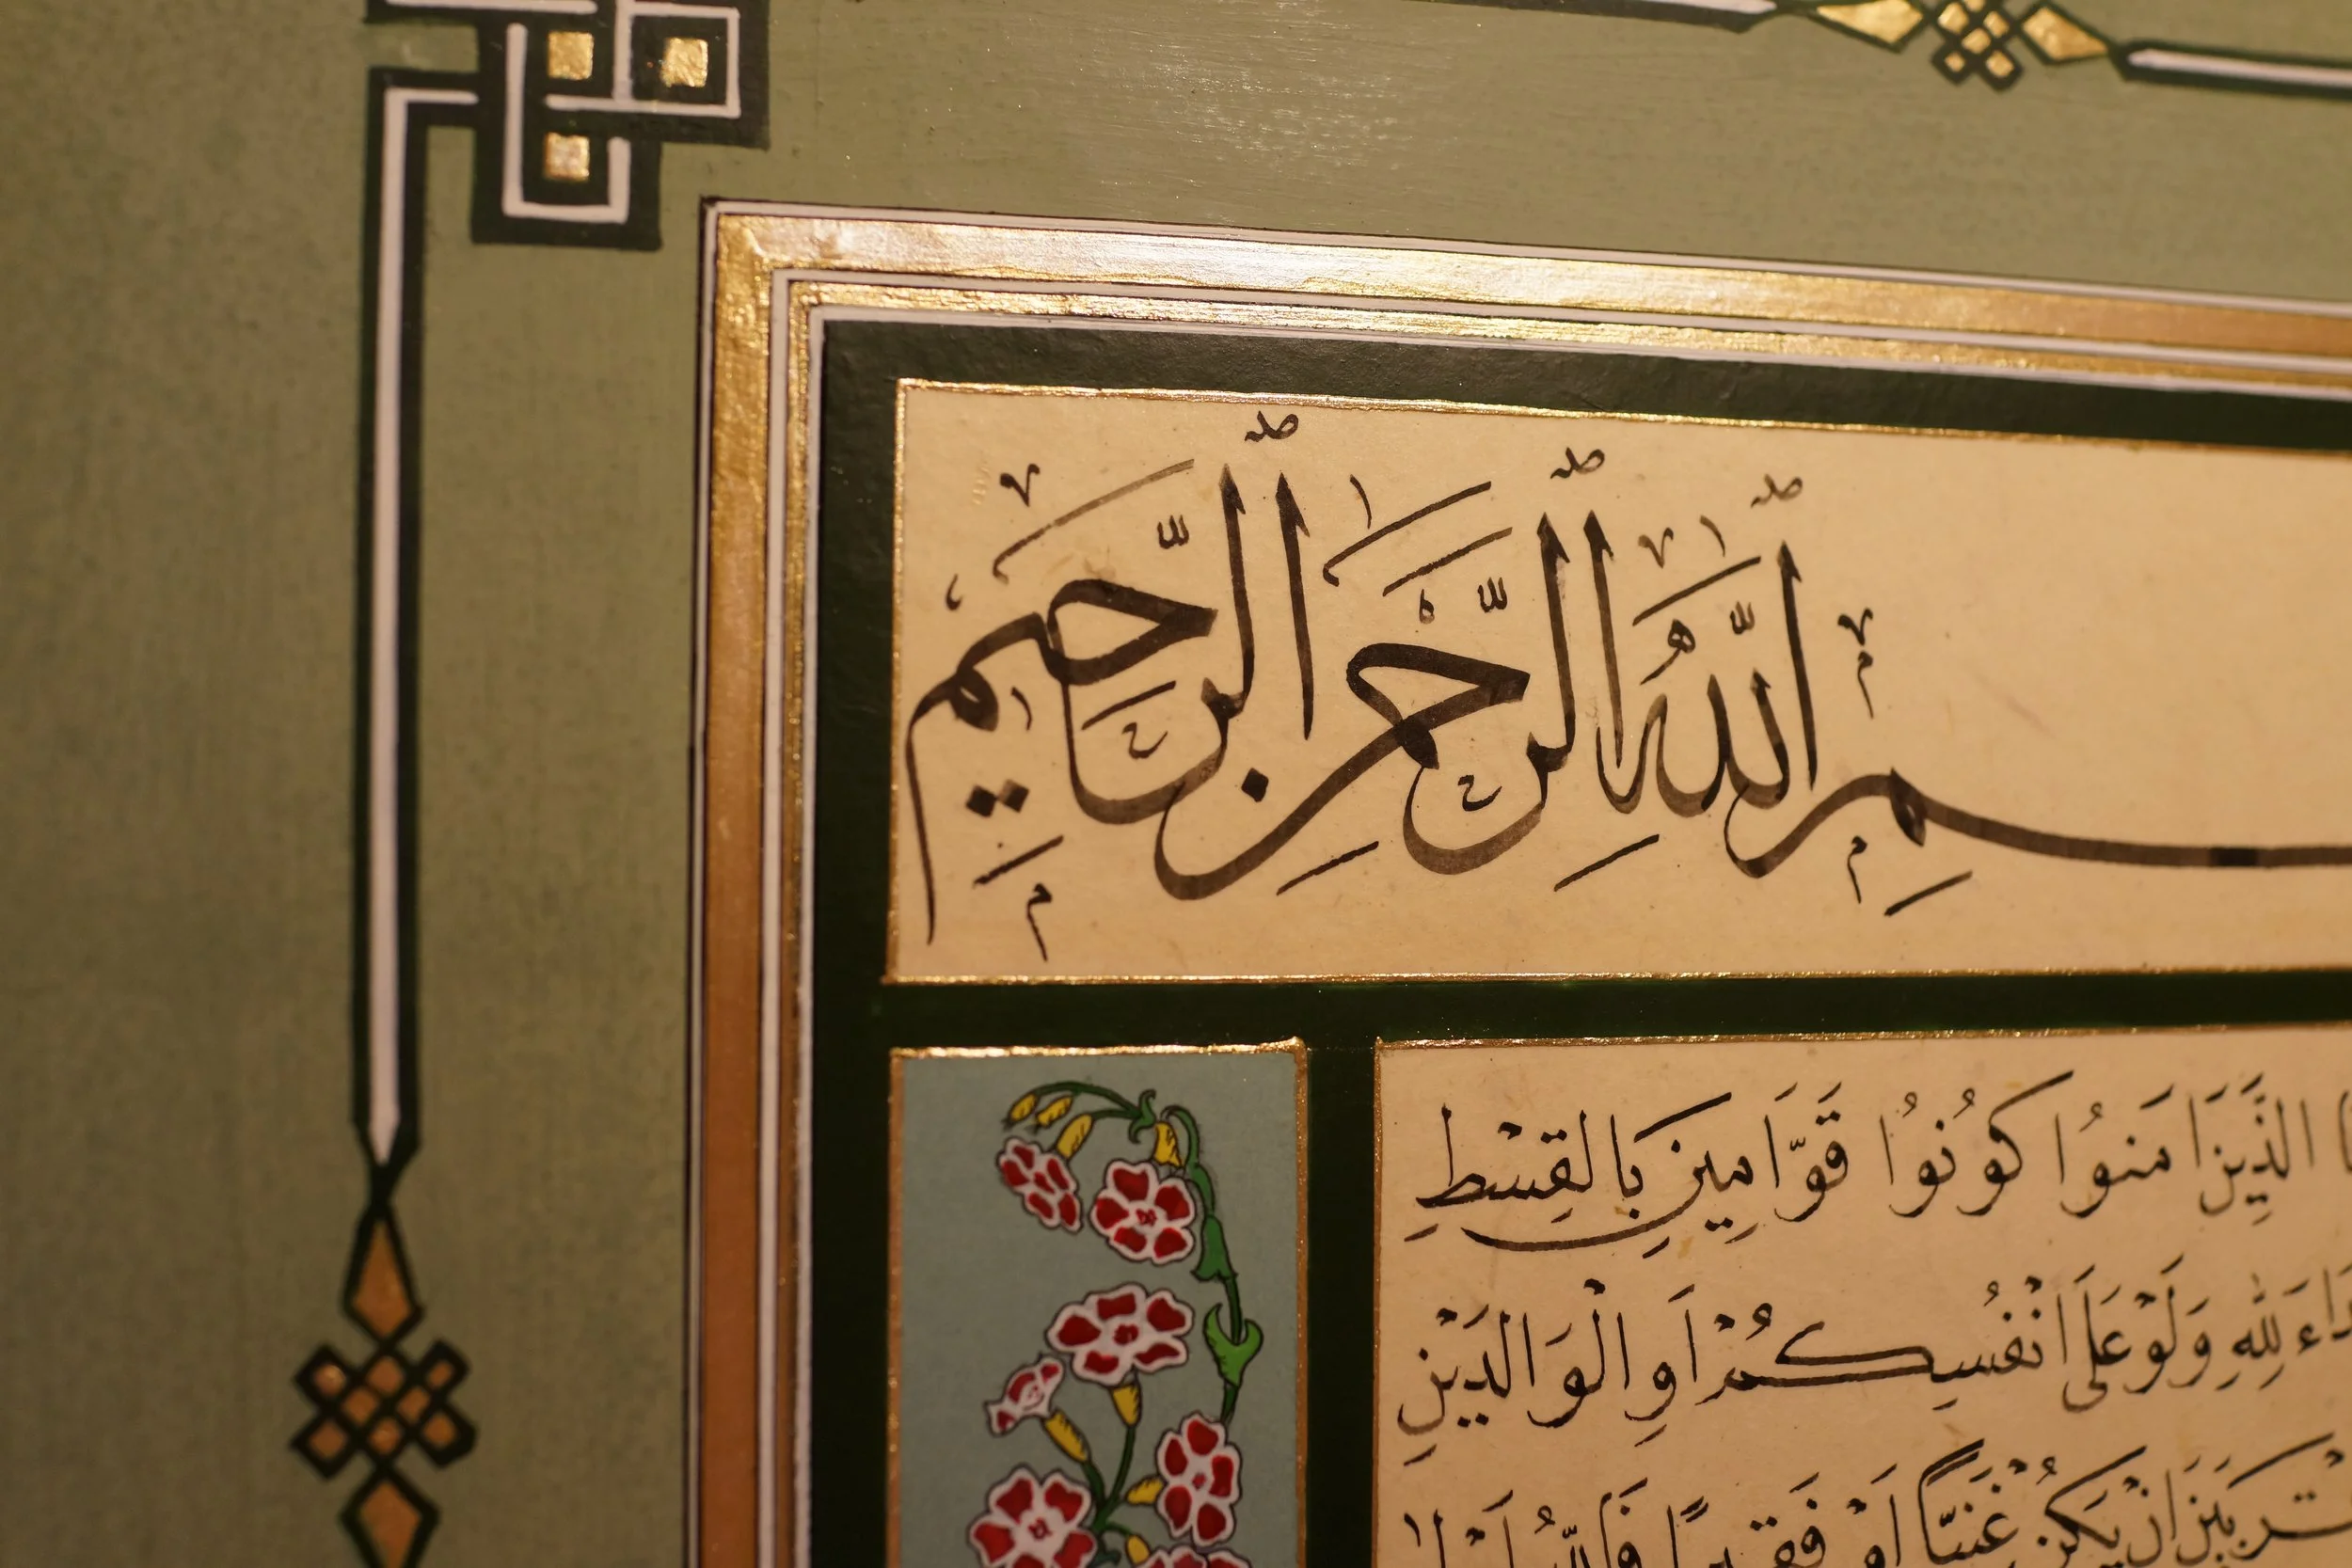 ـسم الله الرَّحْمٰنِ الرَّحِيمِ
الَّذِينَ اٰمَنُوا كُونُوا قَوَّامِينَ بِالْقِسْطِ
لِلّٰهِ وَلَوْ عَلَى اَنْفُسِكُمْ اَوِ الْوَالِدَيْنِ
اِنْ يَكُنْ غَنِيًّا اَوْ فَقِيرًا فَاللّٰهُ